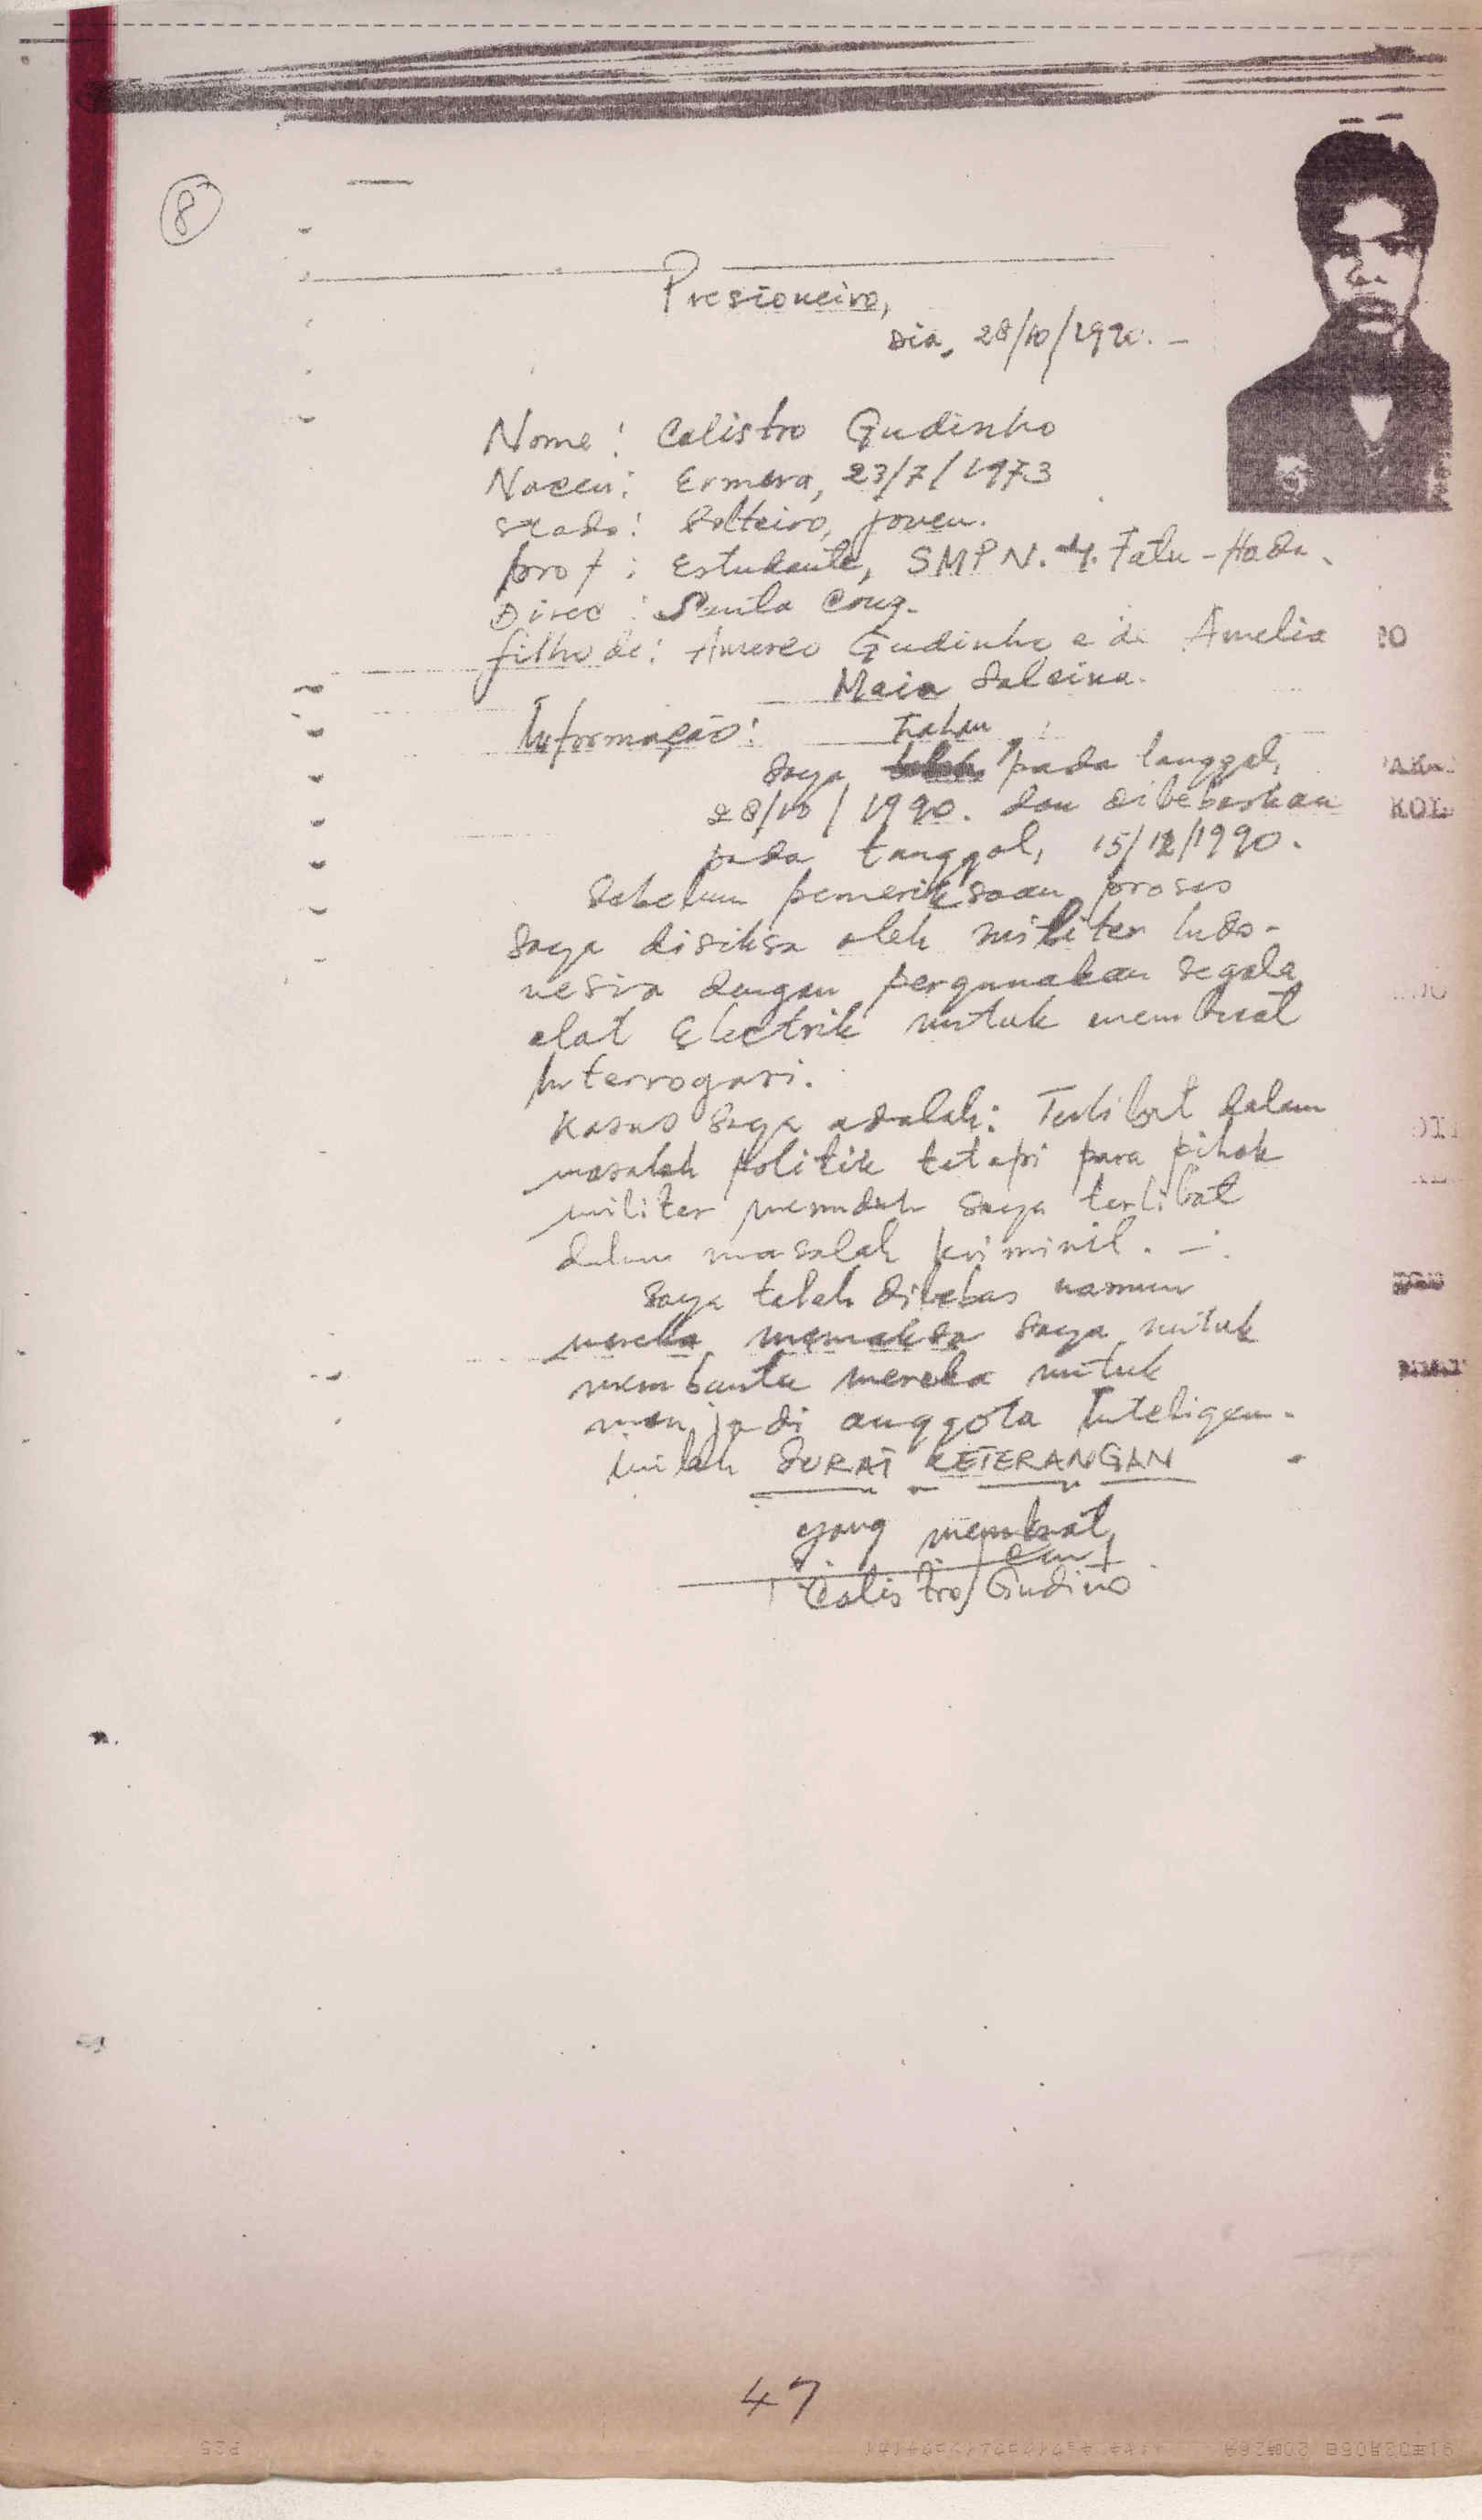 8
Presioneiro,
Dia, 28/10/1990. -
Nome: Calistro Gudinho
Nasceu: Ermera, 23/7/1973
stado: Solteiro, joven.
prof: Estudante, SMP N. 4. Fatu-Hada.
Direc: Santa Cruz.
filho de: Gudinho e de Amelia
Maia Salsina.
Informação: Tahan
Saya pada tanggal,
28/10/1990. dan dibebaskan
pada tanggal, 15/12/1990.
Sebelum pemeriksaan proses
saya disiksa oleh militer Indo-
nesia dengan pergunakan segala
alat Electrik untuk membuat
Interrogasi.
Kasus saya adalah: Terlibat dalam
masalah politik tetapi para pihak
militer menuduh saya terlibat
dalam masalah kriminil. -
Saya telah dibebas namun
mereka memaksa saya untuk
membantu mereka untuk
menjadi anggota Inteligen.
Inilah SURAT KETERANGAN
yang membuat,
Calistro Gudino
47
P25